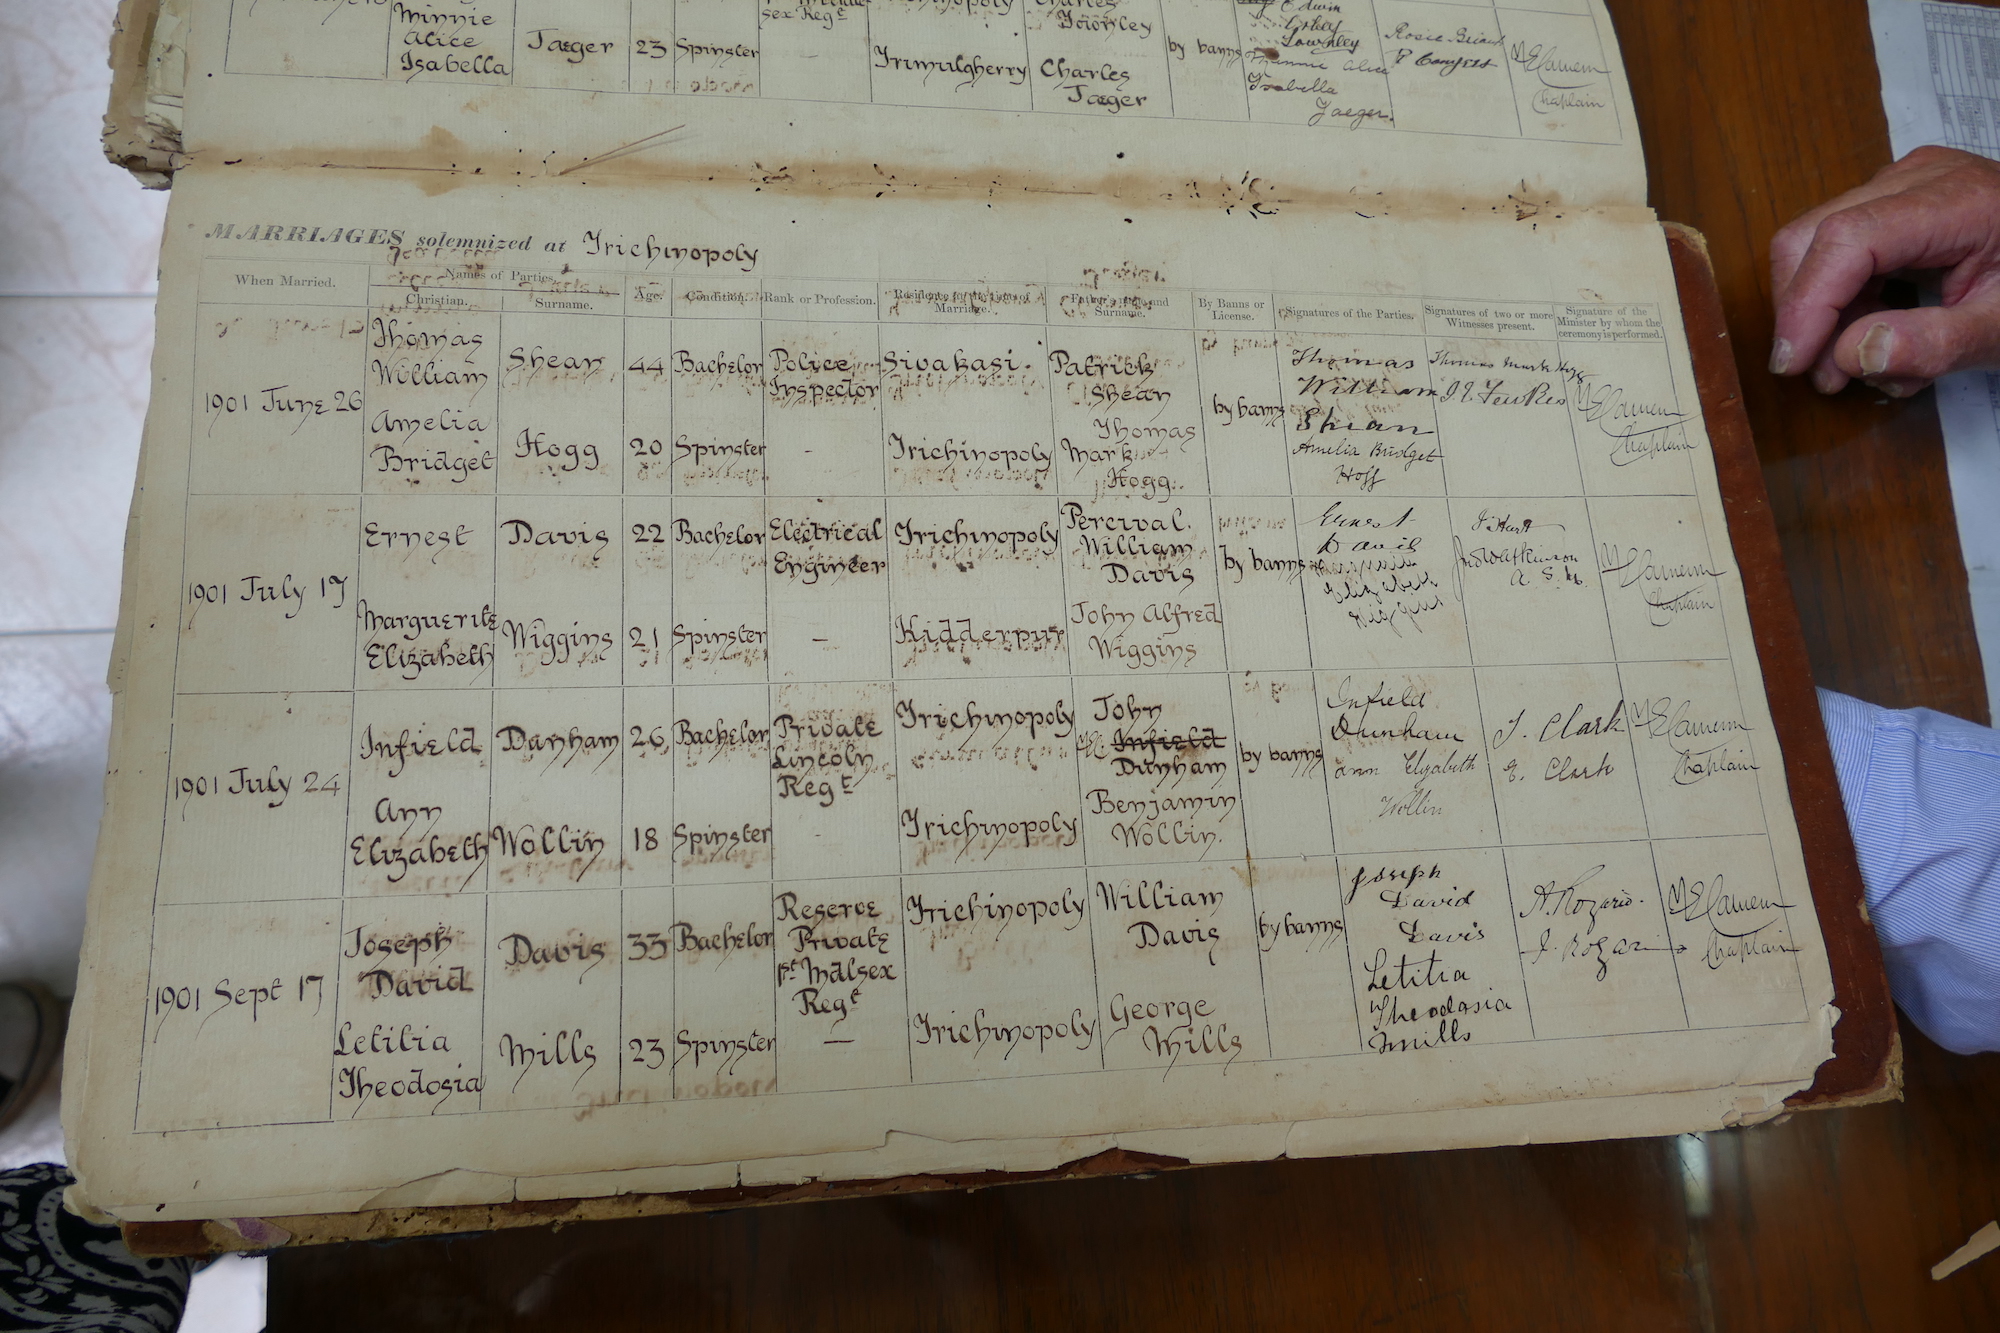 Minnie
Alice
Isabella
Jaeger
23
Spinster
sex Regt
-
Trimulgherry
Charles
Townley
Charles
Jaeger
by banns
Edwin
Townley
Minnie Alice
Isabella
Jaeger.
Rosie
Chaplain
MARRIAGES solemnized at Trichinopoly
When Married.
Names of Parties.
Christian.
Surname.
Age.
Condition.
Rank or Profession.
Residence at the time of
Marriage.
Father's name and
Surname.
By Banns or
License.
Signatures of the Parties.
Signatures of two or more
Witnesses present.
Signature of the
Minister by whom the
ceremony is performed.
1901 June 26
Thomas
William
Shean
44
Bachelor
Police
Inspector
Sivakasi.
Patrick
Shean
Amelia
Bridget
Hogg
20
Spinster
-
Trichinopoly
Thomas
Mark
Hogg.
by banns
Thomas
William
Shean
Amelia Bridget
Hogg
Thomas Mark Hogg
Chaplain
1901 July 17
Ernest
Davis
22
Bachelor
Electrical
Engineer
Trichinopoly
Percival.
William
Davis
Marguerite
Elizabeth
Wiggins
21
Spinster
-
Kidderpur
John Alfred
Wiggins
by banns
Ernest
Davis
Elizabeth
Wiggins
Chaplain
1901 July 24
Infield
Danham
26
Bachelor
Private
Lincoln
Regt
Trichinopoly
John
Infield
Dunham
Ann
Elizabeth
Wollin
18
Spinster
-
Trichinopoly
Benjamin
Wollin.
by banns
Infield
Dunham
Ann Elizabeth
Wollin
J. Clark
E. Clark
Chaplain
1901 Sept 17
Joseph
David
Davis
33
Bachelor
Reserve
Private
1st Mdlsex
Regt
Trichinopoly
William
Davis
Letitia
Theodosia
Mills
23
Spinster
-
Trichinopoly
George
Mills
by banns
Joseph
David
Davis
Letitia
Theodosia
Mills
A. Rozario.
J. Rozario
Chaplain